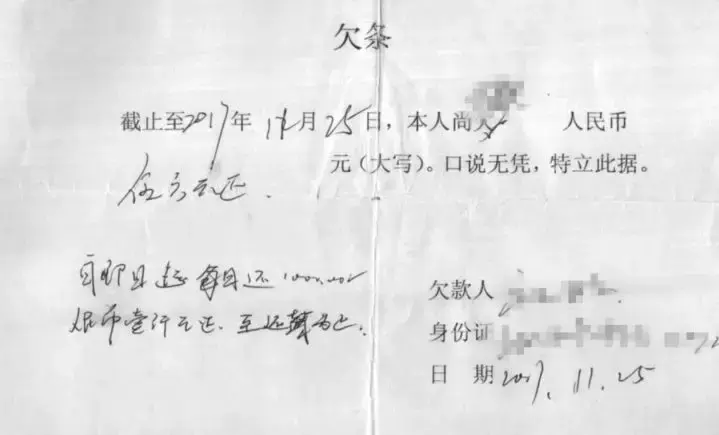 欠条
截止至2017年 11月25日，本人尚欠 人民币
伍万元正. 元（大写）。口说无凭，特立此据。
自即日起每月还1000.00
人民币壹仟元正.至还清为止.
欠款人
身份证
日 期 2017.11.25